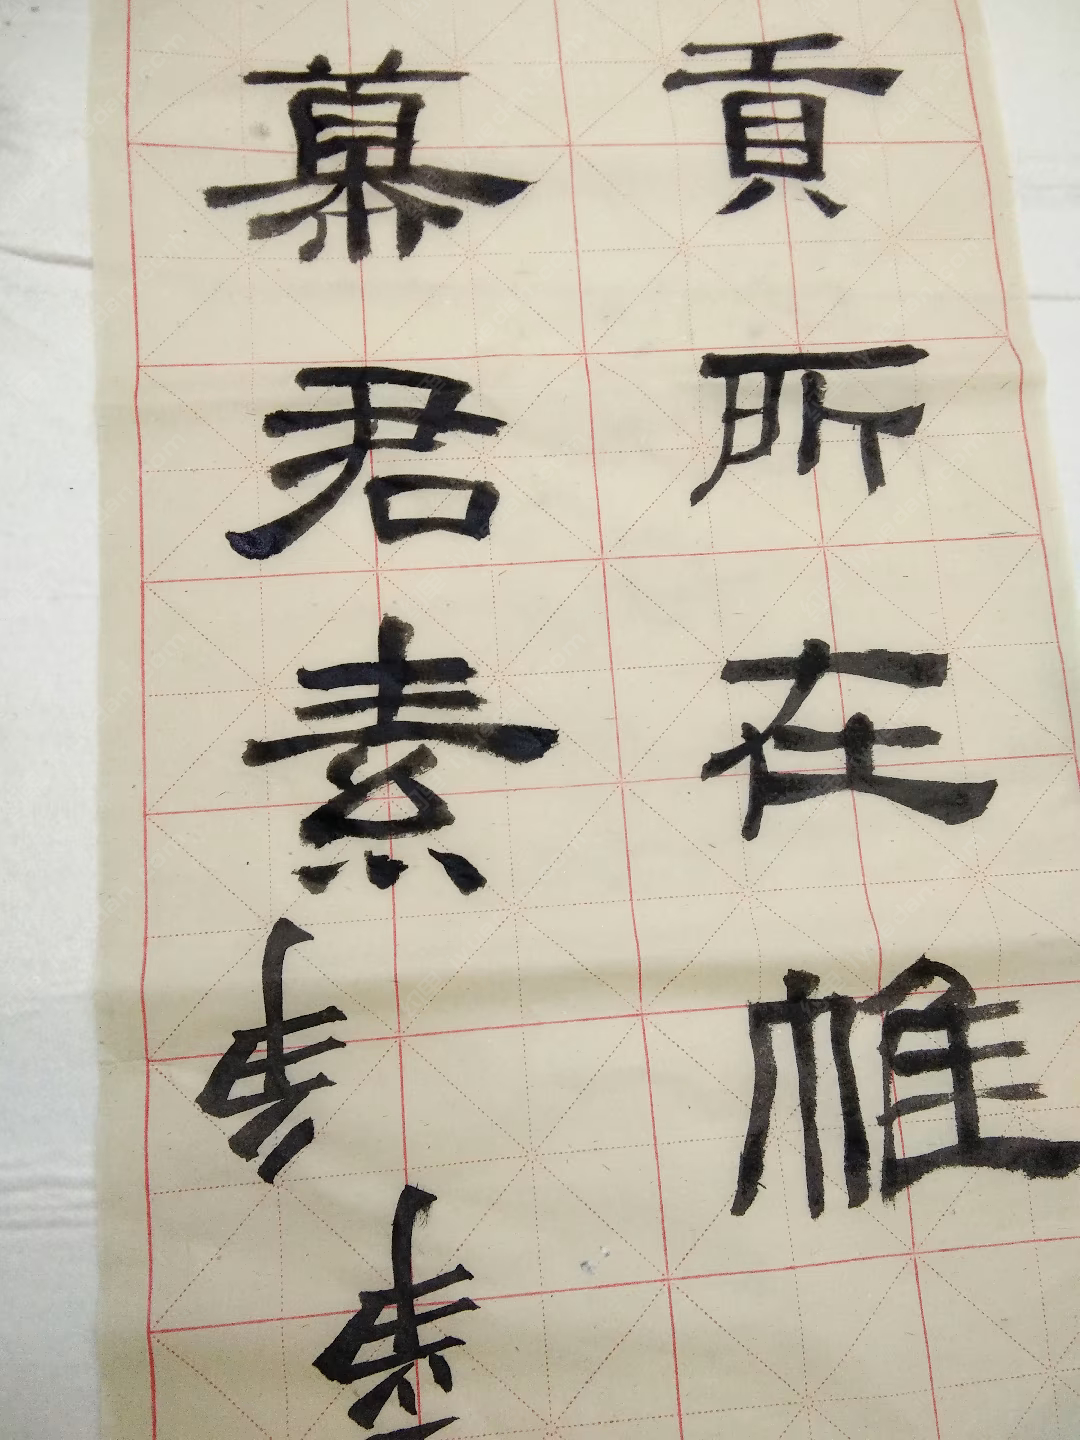 貢所在帷
慕君素